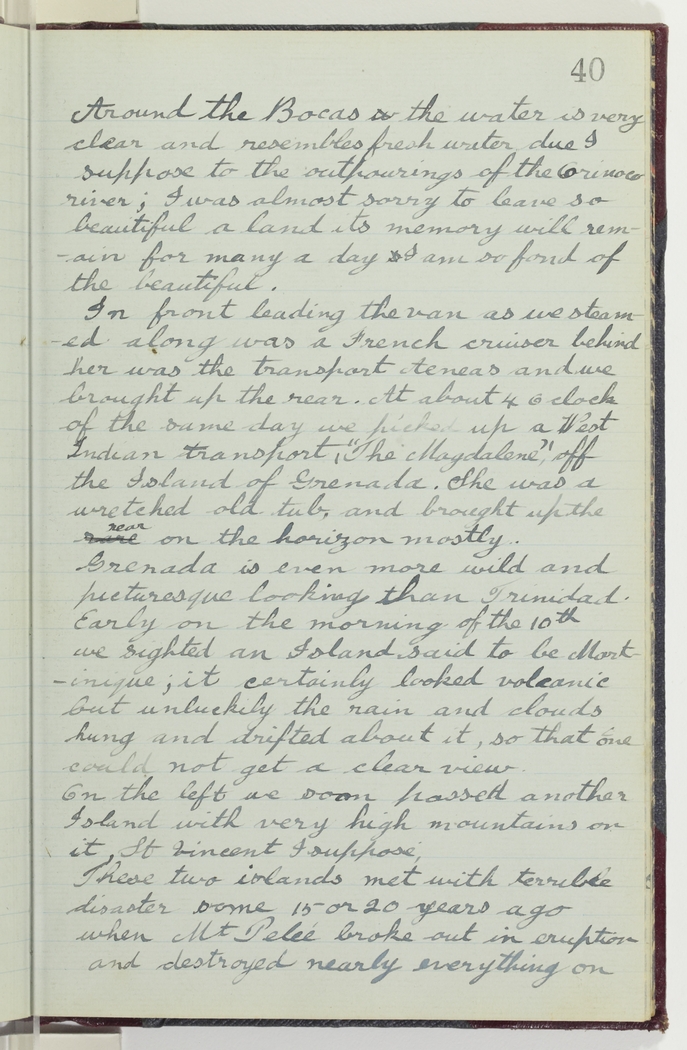 40
Around the Bocas the water is very
clear and resembles fresh water due I
suppose to the outpourings of the Orinoco
river; I was almost sorry to leave so
beautiful a land its memory will rem-
-ain for many a day I am so fond of
the beautiful.
In front leading the van as we steam-
-ed along was a French cruiser behind
her was the transport Aeneas and we
brought up the rear. At about 4 o clock
of the same day we picked up a West
Indian transport, "The Magdalene", off
the Island of Grenada. She was a
wretched old tub, and brought up the
rear
rare on the horizon mostly.
Grenada is even more wild and
picturesque looking than Trinidad.
Early on the morning of the 10th
we sighted an Island said to be Mart-
-inique; it certainly looked volcanic
but unluckily the rain and clouds
hung and drifted about it, so that one
could not get a clear view.
On the left we soon passed another
Island with very high mountains on
it, St Vincent I suppose,
These two islands met with terrible
disaster some 15 or 20 years ago
when Mt Peleé broke out in eruption
and destroyed nearly everything on